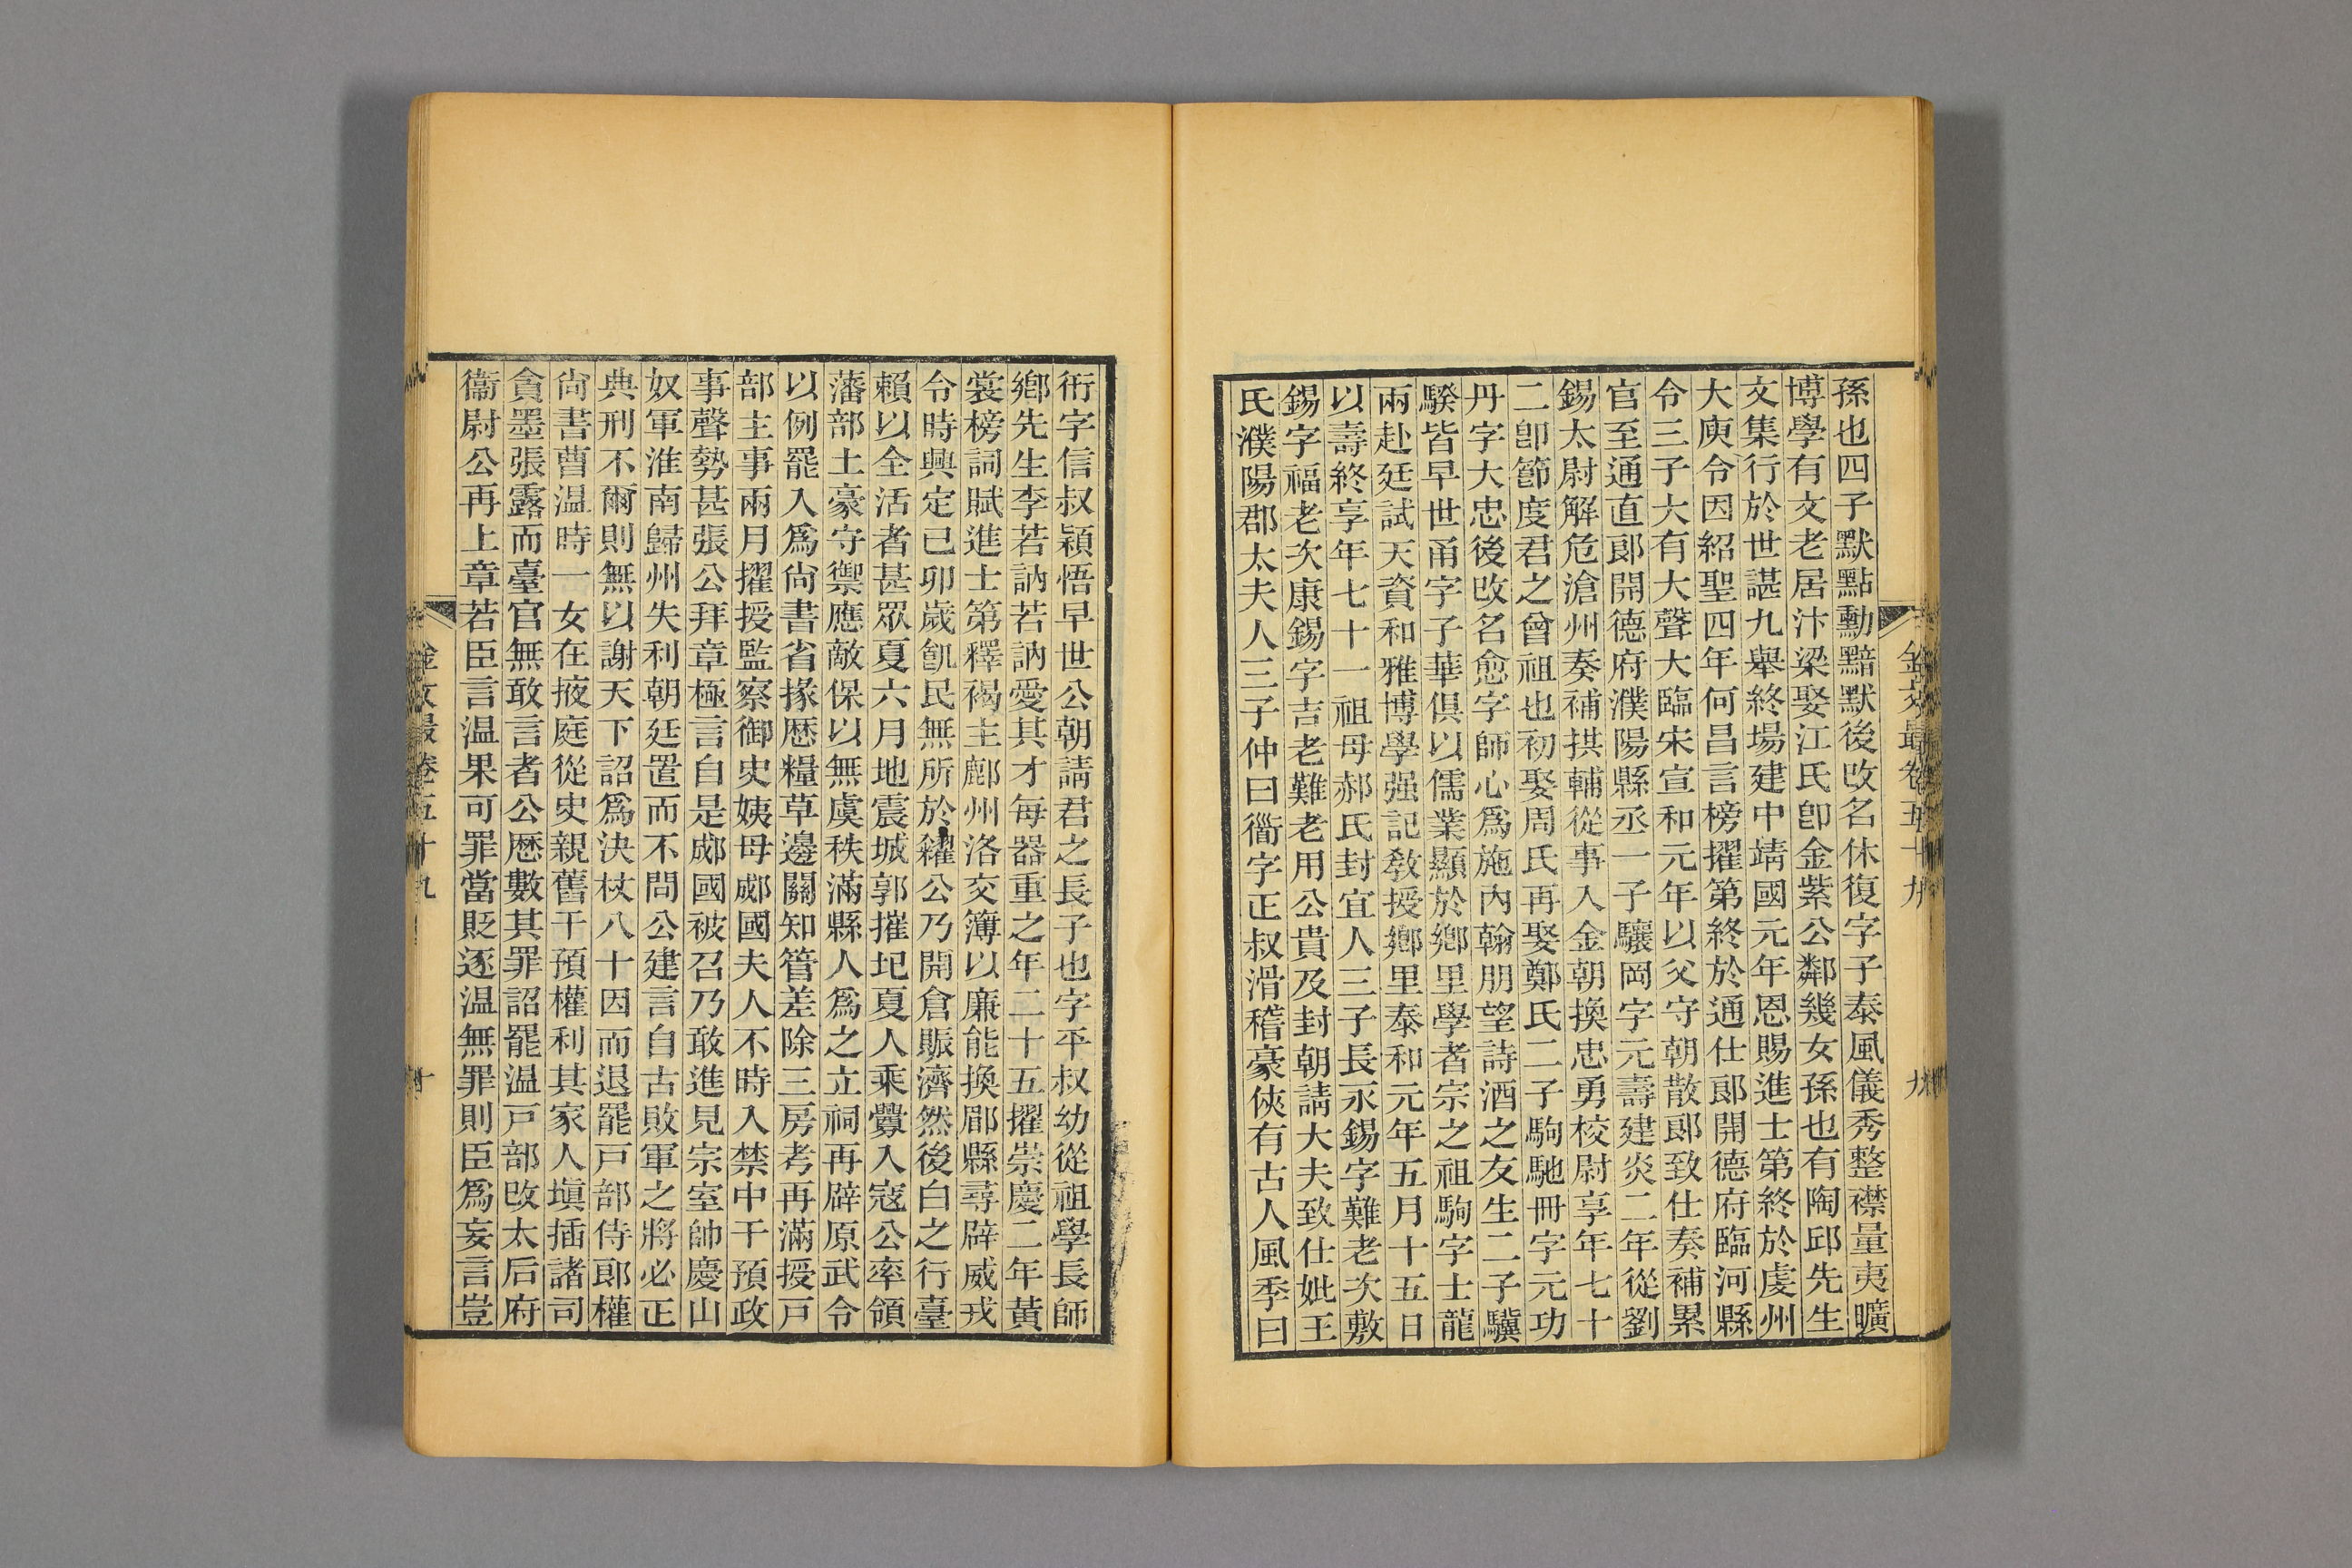 孫也四子默點勳黯默後改名休復字子泰風儀秀整襟量夷曠
博學有文老居汴梁娶江氏卽金紫公鄰幾女孫也有陶邱先生
文集行於世諶九舉終場建中靖國元年恩賜進士第終於虔州
大庾令因紹聖四年何昌言榜擢第終於通仕郞開德府臨河縣
令三子大有大聲大臨宋宣和元年以父守朝散郞致仕奏補累
官至通直郞開德府濮陽縣丞一子驤岡字元壽建炎二年從劉
錫太尉解危滄州奏補拱輔從事入金朝換忠勇校尉享年七十
二卽節度君之曾祖也初娶周氏再娶鄭氏二子駒馳冊字元功
丹字大忠後改名愈字師心爲施內翰朋望詩酒之友生二子驥
騤皆早世甬字子華俱以儒業顯於鄉里學者宗之祖駒字士龍
兩赴廷試天資和雅博學强記敎授鄉里泰和元年五月十五日
以壽終享年七十一祖母郝氏封宜人三子長永錫字難老次敷
錫字福老次康錫字吉老難老用公貴及封朝請大夫致仕妣王
氏濮陽郡太夫人三子仲曰衟字正叔滑稽豪俠有古人風季曰
金文最卷五十九
九
衎字信叔穎悟早世公朝請君之長子也字平叔幼從祖學長師
鄉先生李若訥若訥愛其才每器重之年二十五擢崇慶二年黃
裳榜詞賦進士第釋褐主鄜州洛交簿以廉能換郿縣尋辟威戎
令時興定己卯歲飢民無所於糴公乃開倉賑濟然後白之行臺
賴以全活者甚眾夏六月地震城郭摧圮夏人乘釁入寇公率領
藩部土豪守禦應敵保以無虞秩滿縣人爲之立祠再辟原武令
以例罷入爲尙書省掾歷糧草邊關知管差除三房考再滿授戸
部主事兩月擢授監察御史姨母郕國夫人不時入禁中干預政
事聲勢甚張公拜章極言自是郕國被召乃敢進見宗室帥慶山
奴軍淮南歸州失利朝廷置而不問公建言自古敗軍之將必正
典刑不爾則無以謝天下詔爲決杖八十因而退罷戸部侍郞權
尙書曹溫時一女在掖庭從史親舊干預權利其家人塡插諸司
貪墨張露而臺官無敢言者公歷數其罪詔罷溫戸部改太后府
衞尉公再上章若臣言溫果可罪當貶逐溫無罪則臣爲妄言豈
金文最卷五十九
十